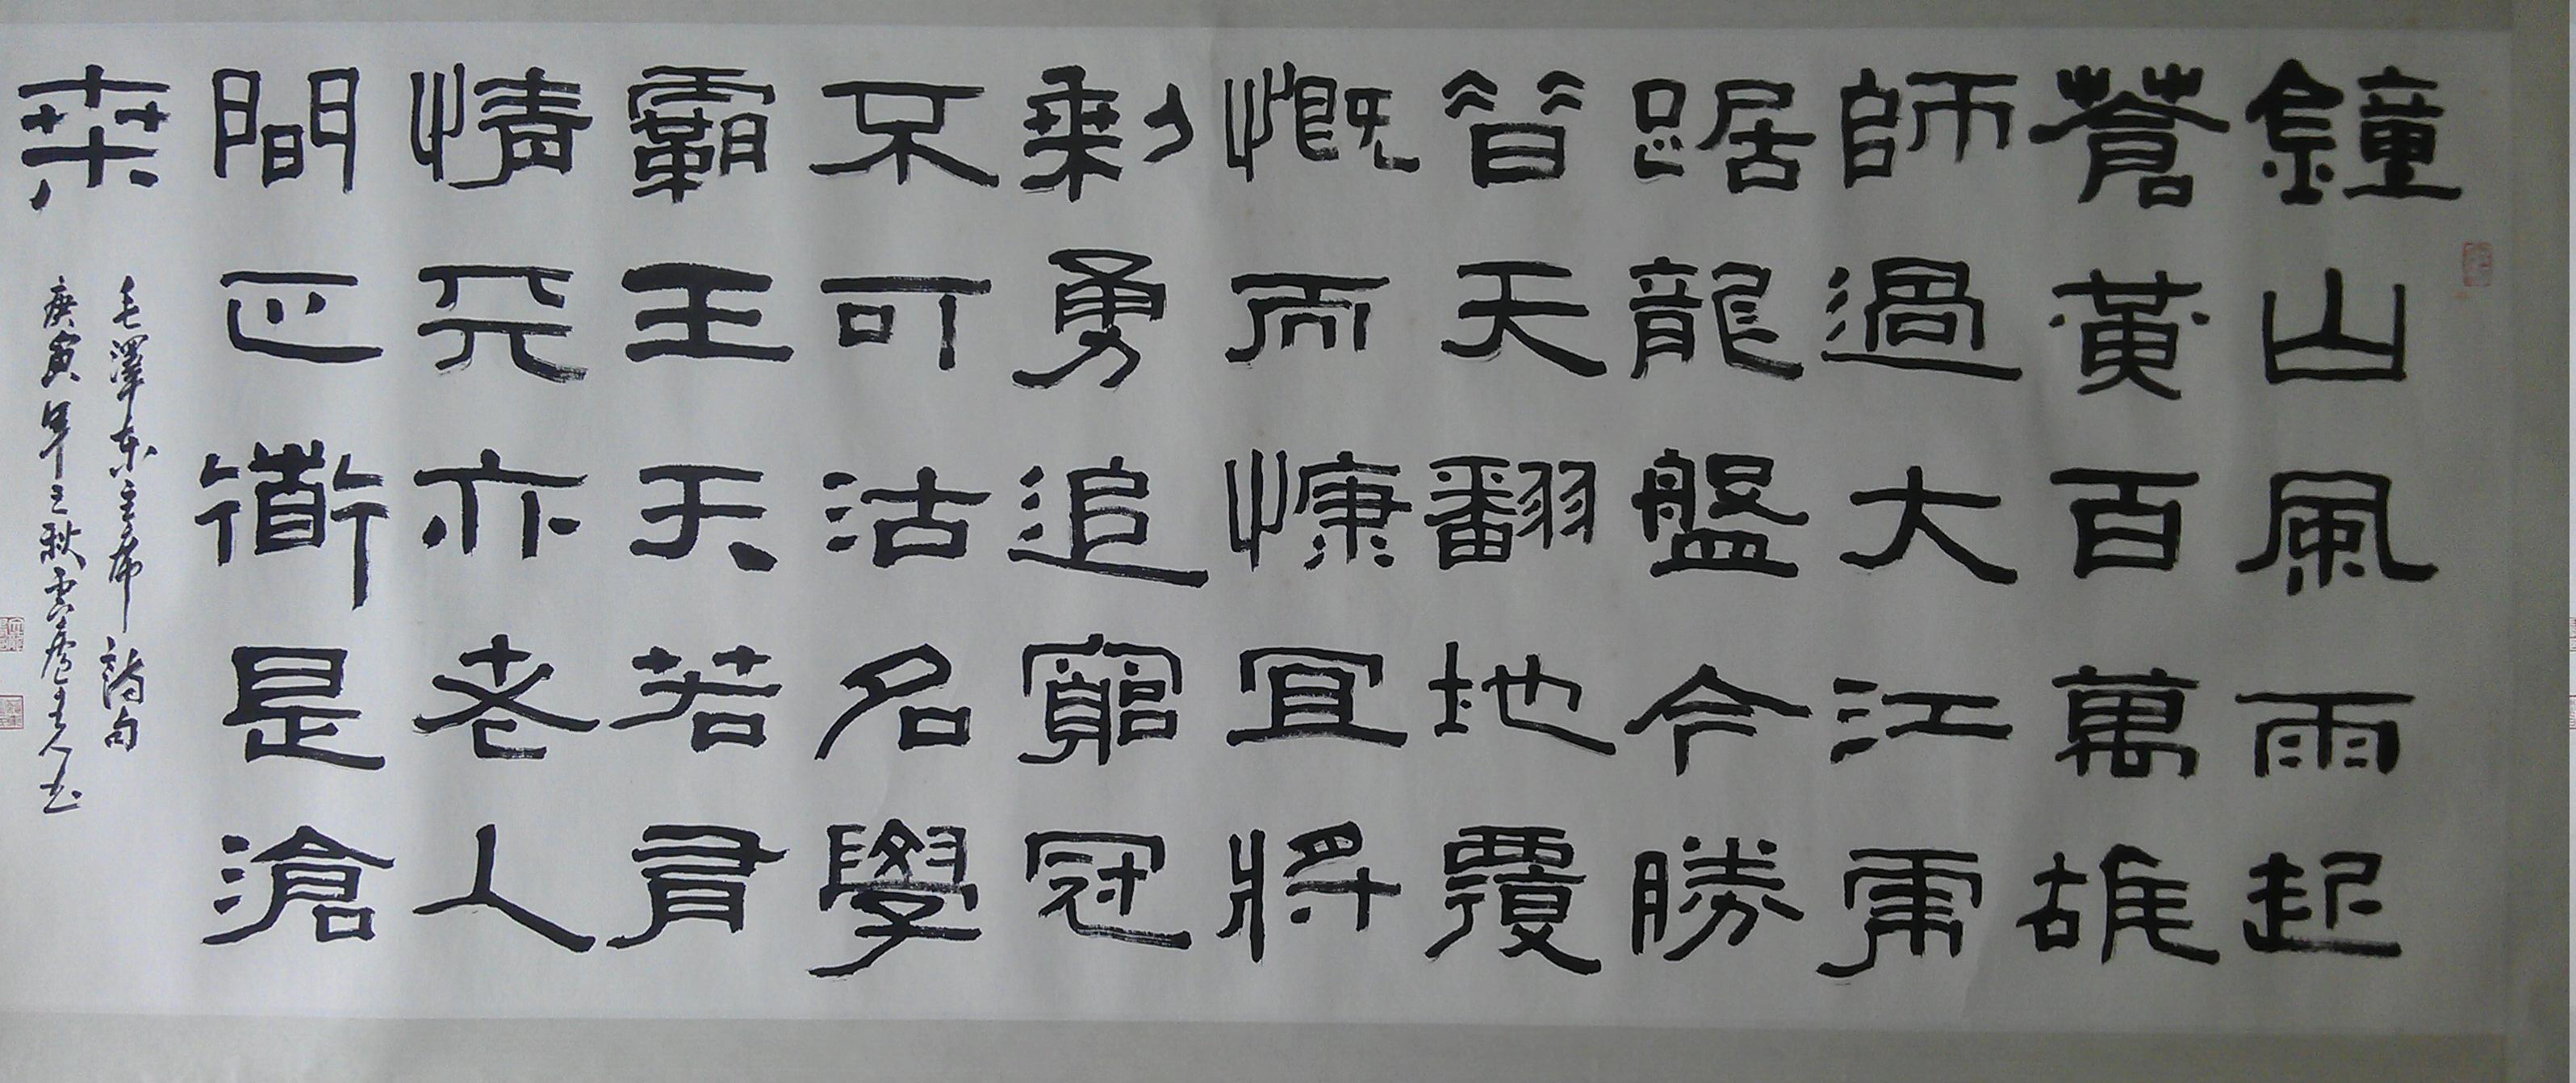 鐘山風雨起
蒼黃百萬雄
師過大江虎
踞龍盤今勝
昔天翻地覆
慨而慷宜將
剩勇追窮寇
不可沽名學
霸王天若有
情天亦老人
間正道是滄
桑
毛澤東主席詩句
庚寅年之秋雲主人书